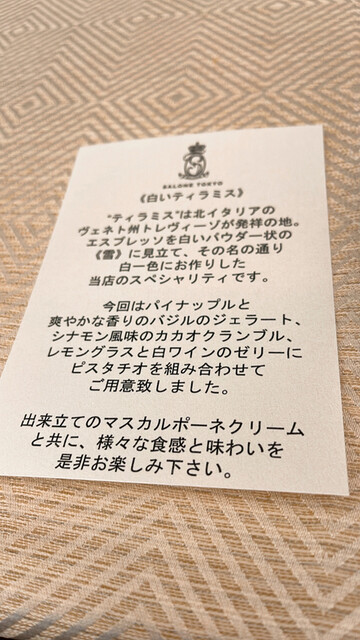 SALONE TOKYO
《白いティラミス》
“ティラミス”は北イタリアの
ヴェネト州トレヴィーゾが発祥の地。
エスプレッソを白いパウダー状の
《雪》に見立て、その名の通り
白一色にお作りした
当店のスペシャリティです。
今回はパイナップルと
爽やかな香りのバジルのジェラート、
シナモン風味のカカオクランブル、
レモングラスと白ワインのゼリーに
ピスタチオを組み合わせて
ご用意致しました。
出来立てのマスカルポーネクリーム
と共に、様々な食感と味わいを
是非お楽しみ下さい。